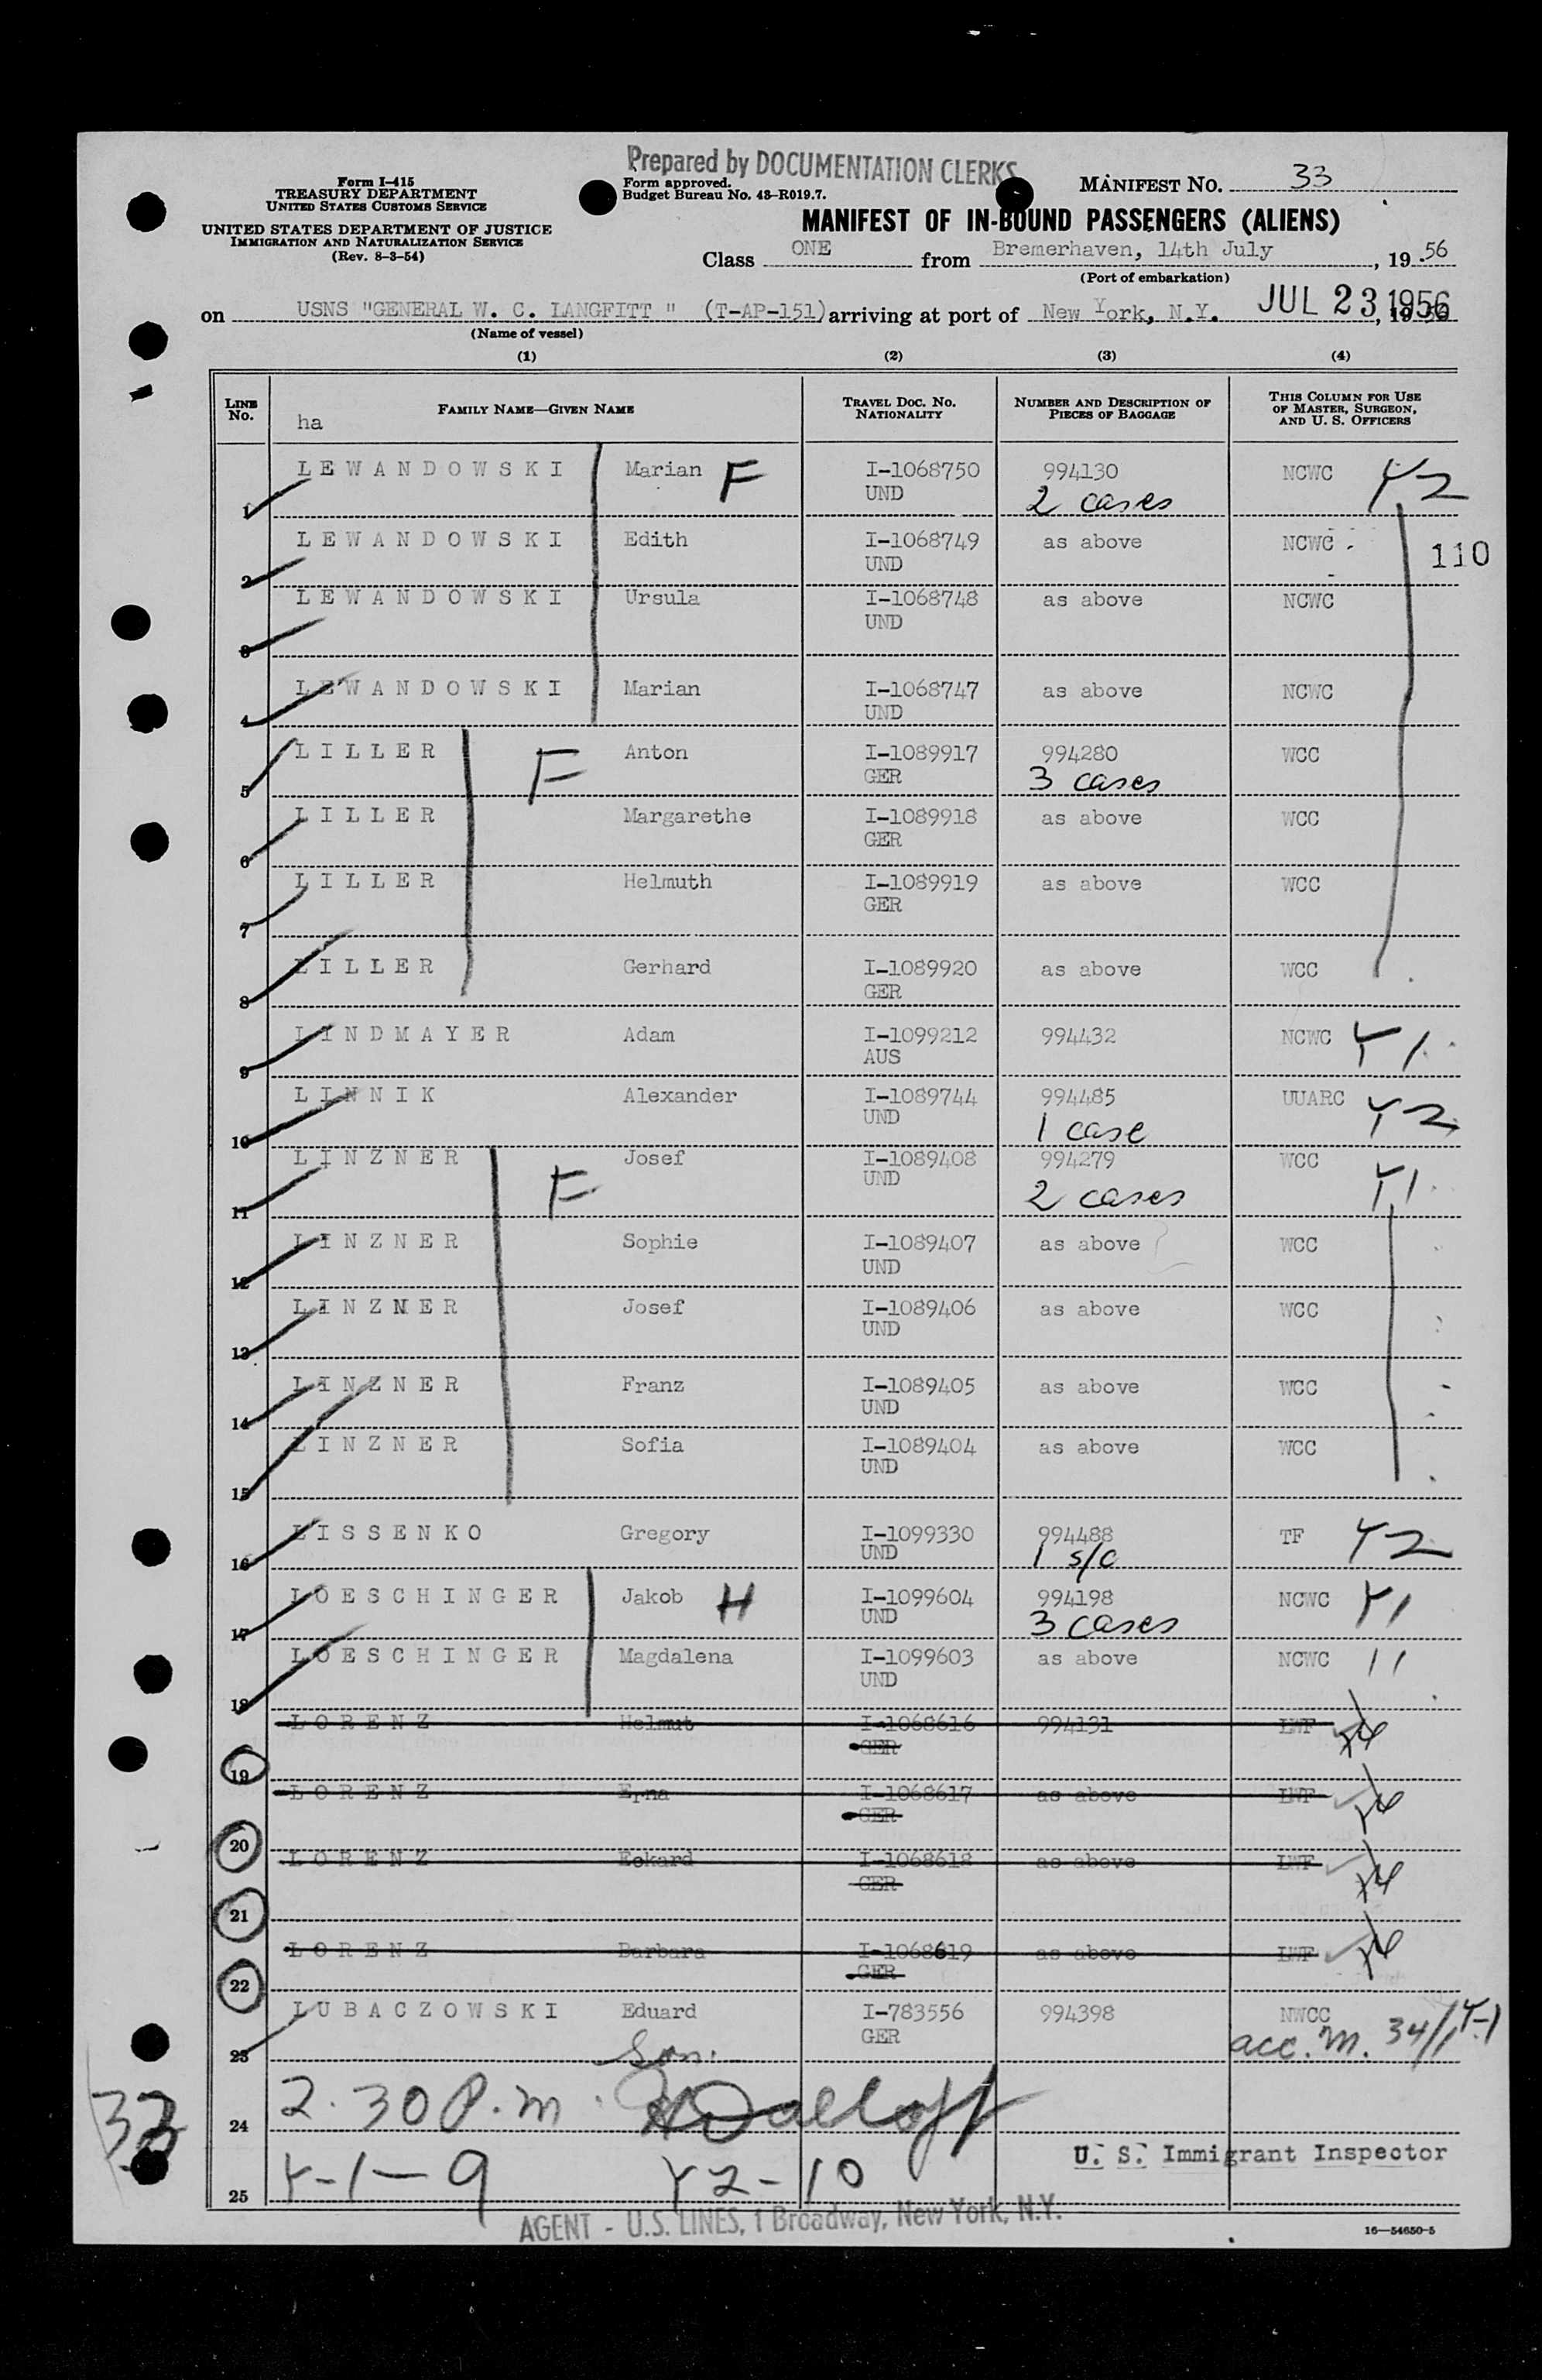 Prepared by DOCUMENTATION CLERKS
Form I-415
TREASURY DEPARTMENT
UNITED STATES CUSTOMS SERVICE
UNITED STATES DEPARTMENT OF JUSTICE
IMMIGRATION AND NATURALIZATION SERVICE
(Rev. 8-3-54)
Form approved.
Budget Bureau No. 43-R019.7.
MANIFEST NO. 33
MANIFEST OF IN-BOUND PASSENGERS (ALIENS)
Class ONE from Bremerhaven, 14th July, 19 56
(Port of embarkation)
on USNS "GENERAL W. C. LANGFITT " (T-AP-151) arriving at port of New York, N.Y. JUL 23 1956
(Name of vessel)
(1) (2) (3) (4)
LINE No. FAMILY NAME—GIVEN NAME TRAVEL DOC. NO. NATIONALITY NUMBER AND DESCRIPTION OF PIECES OF BAGGAGE THIS COLUMN FOR USE OF MASTER, SURGEON, AND U. S. OFFICERS
ha
1 LEWANDOWSKI Marian F I-1068750 994130 NCWC Y2
UND 2 cases
2 LEWANDOWSKI Edith I-1068749 as above NCWC 110
UND
3 LEWANDOWSKI Ursula I-1068748 as above NCWC
UND
4 LEWANDOWSKI Marian I-1068747 as above NCWC
UND
5 LILLER F Anton I-1089917 994280 WCC
GER 3 cases
6 LILLER Margarethe I-1089918 as above WCC
GER
7 LILLER Helmuth I-1089919 as above WCC
GER
8 LILLER Gerhard I-1089920 as above WCC
GER
9 LINDMAYER Adam I-1099212 994432 NCWC Y1
AUS
10 LINNIK Alexander I-1089744 994485 UUARC Y2
UND 1 case
11 LINZNER F Josef I-1089408 994279 WCC Y1
UND 2 cases
12 LINZNER Sophie I-1089407 as above WCC
UND
13 LINZNER Josef I-1089406 as above WCC
UND
14 LINZNER Franz I-1089405 as above WCC
UND
15 LINZNER Sofia I-1089404 as above WCC
UND
16 LISSENKO Gregory I-1099330 994488 TF Y2
UND 1 s/c
17 LOESCHINGER Jakob H I-1099604 994198 NCWC Y1
UND 3 cases
18 LOESCHINGER Magdalena I-1099603 as above NCWC 11
UND
19 LORENZ Helmut I-1068616 994131 LWF
GER
20 LORENZ Erna I-1068617 as above LWF
GER
21 LORENZ Eckard I-1068618 as above LWF
GER
22 LORENZ Barbara I-1068619 as above LWF
GER
23 LUBACZOWSKI Eduard I-783556 994398 NWCC
GER acc. M. 34/1 Y-1
24 2.30 P.m.
U. S. Immigrant Inspector
25 Y-1-9 Y2-10
AGENT - U.S. LINES, 1 Broadway, New York, N.Y.
16—54650-5